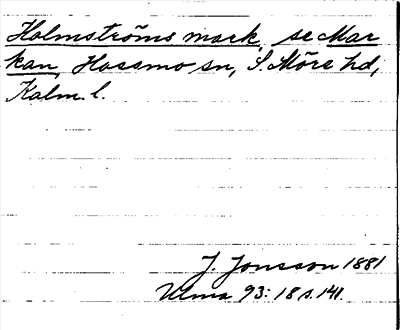 Holmströms mark, se Mar
kan, Hossmo sn, S. Möre hd,
Kalm. l.
J. Jonsson 1881
Ulma 93:18 s. 141.